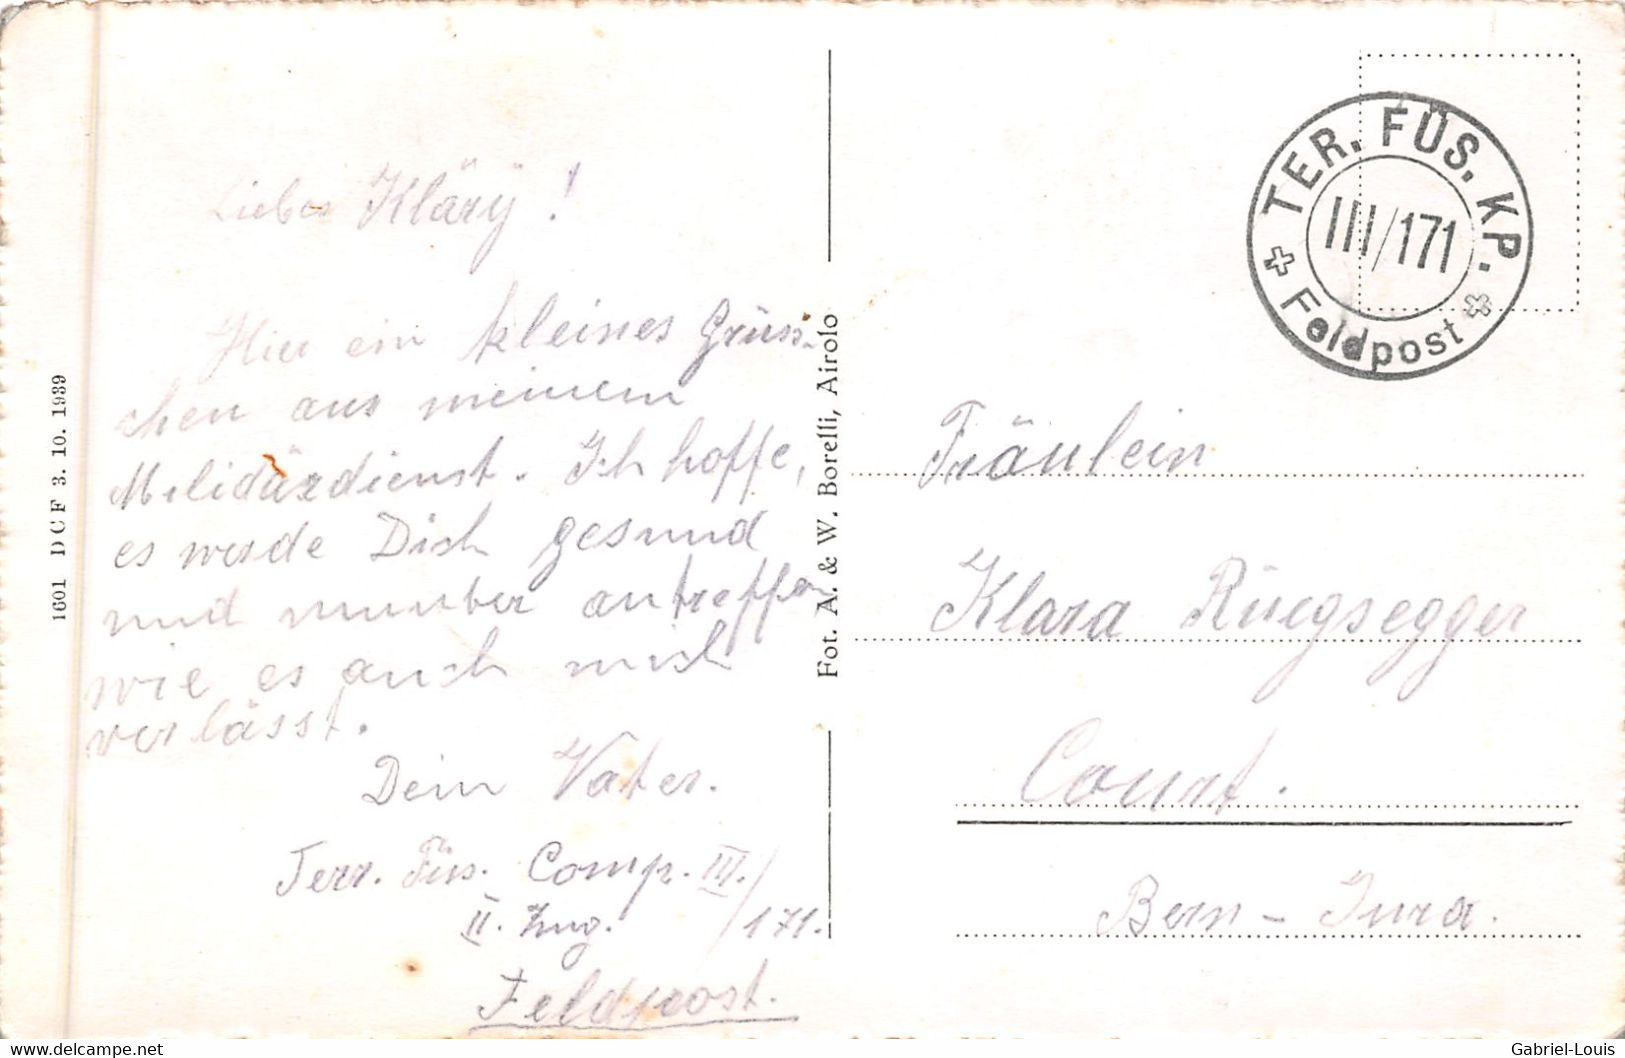 Liebes Kläry !
Hier ein kleines Grüss-
chen aus meinem
Melidärdienst. Ich hoffe,
es werde Dich gesund
und munter antreffen
wie es auch mich
verlässt.
Dein Vater.
Terr. Füs. Comp. III./
II. Zug. /171.
Feldpost.
1601 DCF 3. 10. 1939
Fot. A. & W. Borelli, Airolo
TER. FÜS. KP.
III/171
Feldpost
Fräulein
Klara Rüegsegger
Court.
Bern - Jura.
delcampe.net
Gabriel-Louis